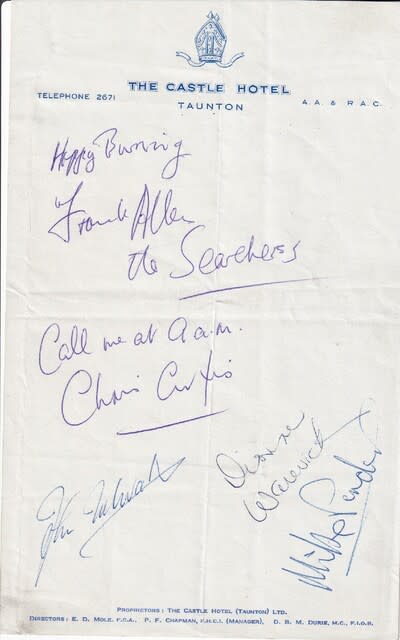 THE CASTLE HOTEL
TELEPHONE 2671
TAUNTON
A.A. & R.A.C.
Happy Burning
Frank Allen
the Searchers
Call me at 9 a.m.
Chris Curtis
Dionne
Warwick
John McNally
Mike Pender
PROPRIETORS: THE CASTLE HOTEL (TAUNTON) LTD.
DIRECTORS: E. D. MOLE, F.C.A., P. F. CHAPMAN, F.H.C.I. (MANAGER), D. B. M. DURIE, M.C., F.I.O.B.